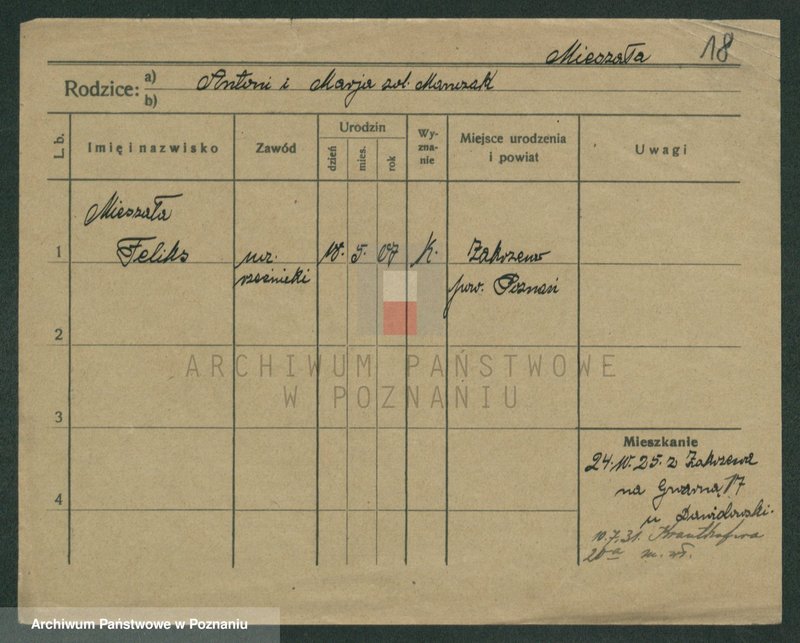 Mieszała 18
Rodzice: a) b) Antoni i Marja zol. Manczak
L. b. Imię i nazwisko Zawód Urodzin dzień mies. rok Wyznanie Miejsce urodzenia i powiat Uwagi
Mieszała
1 Feliks ucz. 5. 07 K. Zakrzewo
rzeźnicki pow. Poznań
2
ARCHIWUM PAŃSTWOWE
W POZNANIU
3
Mieszkanie
24. 25. z Zakrzewa
4 na Gwarną 17
u Dawidowski.
10.7.31.
20a m. wł.
Archiwum Państwowe w Poznaniu